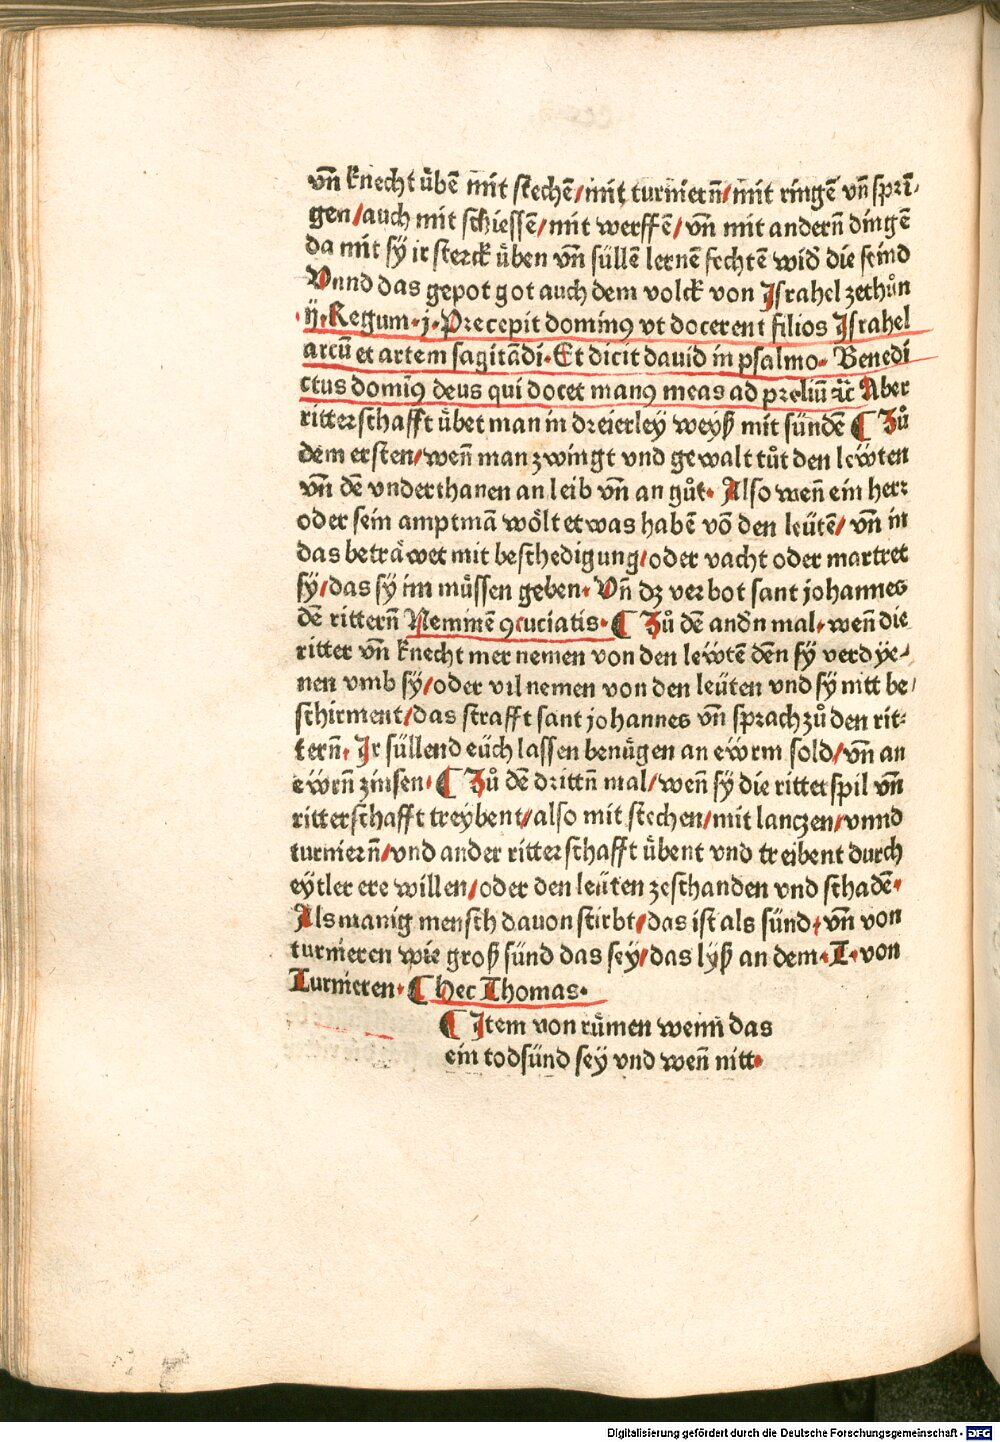 vñ knecht übẽ mit stechẽ/mit turnierñ/mit ringẽ vñ sprĩ-
gen/auch mit schiessẽ/mit werffẽ/vñ mit anderñ dingẽ
da mit sÿ ir sterck übẽn vñ süllẽ lernẽ fechtẽ wid̃ die feind
Vnnd das gepot got auch dem volck von Israhel zethůn
ij. Regum. j. Precepit dominꝰ vt docerent filios Israhel
arcũ et artem sagitãdi. Et dicit dauid in psalmo. Benedi
ctus domĩꝰ deus qui docet manꝰ meas ad preliũ ꝛc̃ Aber
ritterschafft übet man in dreierley weyß mit sündẽ ¶ Zů
dem ersten/wenñ man zwingt vnd gewalt tůt den lewten
vñ dẽ vnderthanen an leib vñ an gůt. Also wenñ ein herꝛ
oder sein amptmã wölt etwas habẽ võ den leütẽ/vñ in
das beträwet mit beschedigung/oder vacht oder martret
sÿ/das sÿ im müssen geben. Vñ dz verbot sant johannes
dẽ ritterñ Neminẽ ꝯcuciatis. ¶ Zů dẽ and̃n mal. wenñ die
ritter vñ knecht mer nemen von den lewtẽ deñ sÿ verdye-
nen vmb sÿ/oder vil nemen von den leüten vnd sÿ nitt be/
schirment/das strafft sant johannes vñ sprach zů den rit-
terñ. Ir süllend eüch lassen benügen an ewrm sold/vñ an
ewrñ zinsen. ¶ Zů dẽ drittñ mal/wenñ sÿ die ritterspil vñ
ritterschafft treybent/also mit stechen/mit lanczen/vnnd
turnierñ/vnd ander ritterschafft übent vnd treibent durch
eytler ere willen/oder den leüten zeschanden vnd schadẽ.
Als manig mensch dauon stirbt/das ist als sünd. vñ von
turnieren wie groß sünd das sey/das lyß an dem. T. von
Turnieren. ¶ Hec Thomas.
¶ Item von rümen wenn das
ein todsünd sey vnd wenñ nitt.
Digitalisierung gefördert durch die Deutsche Forschungsgemeinschaft - DFG